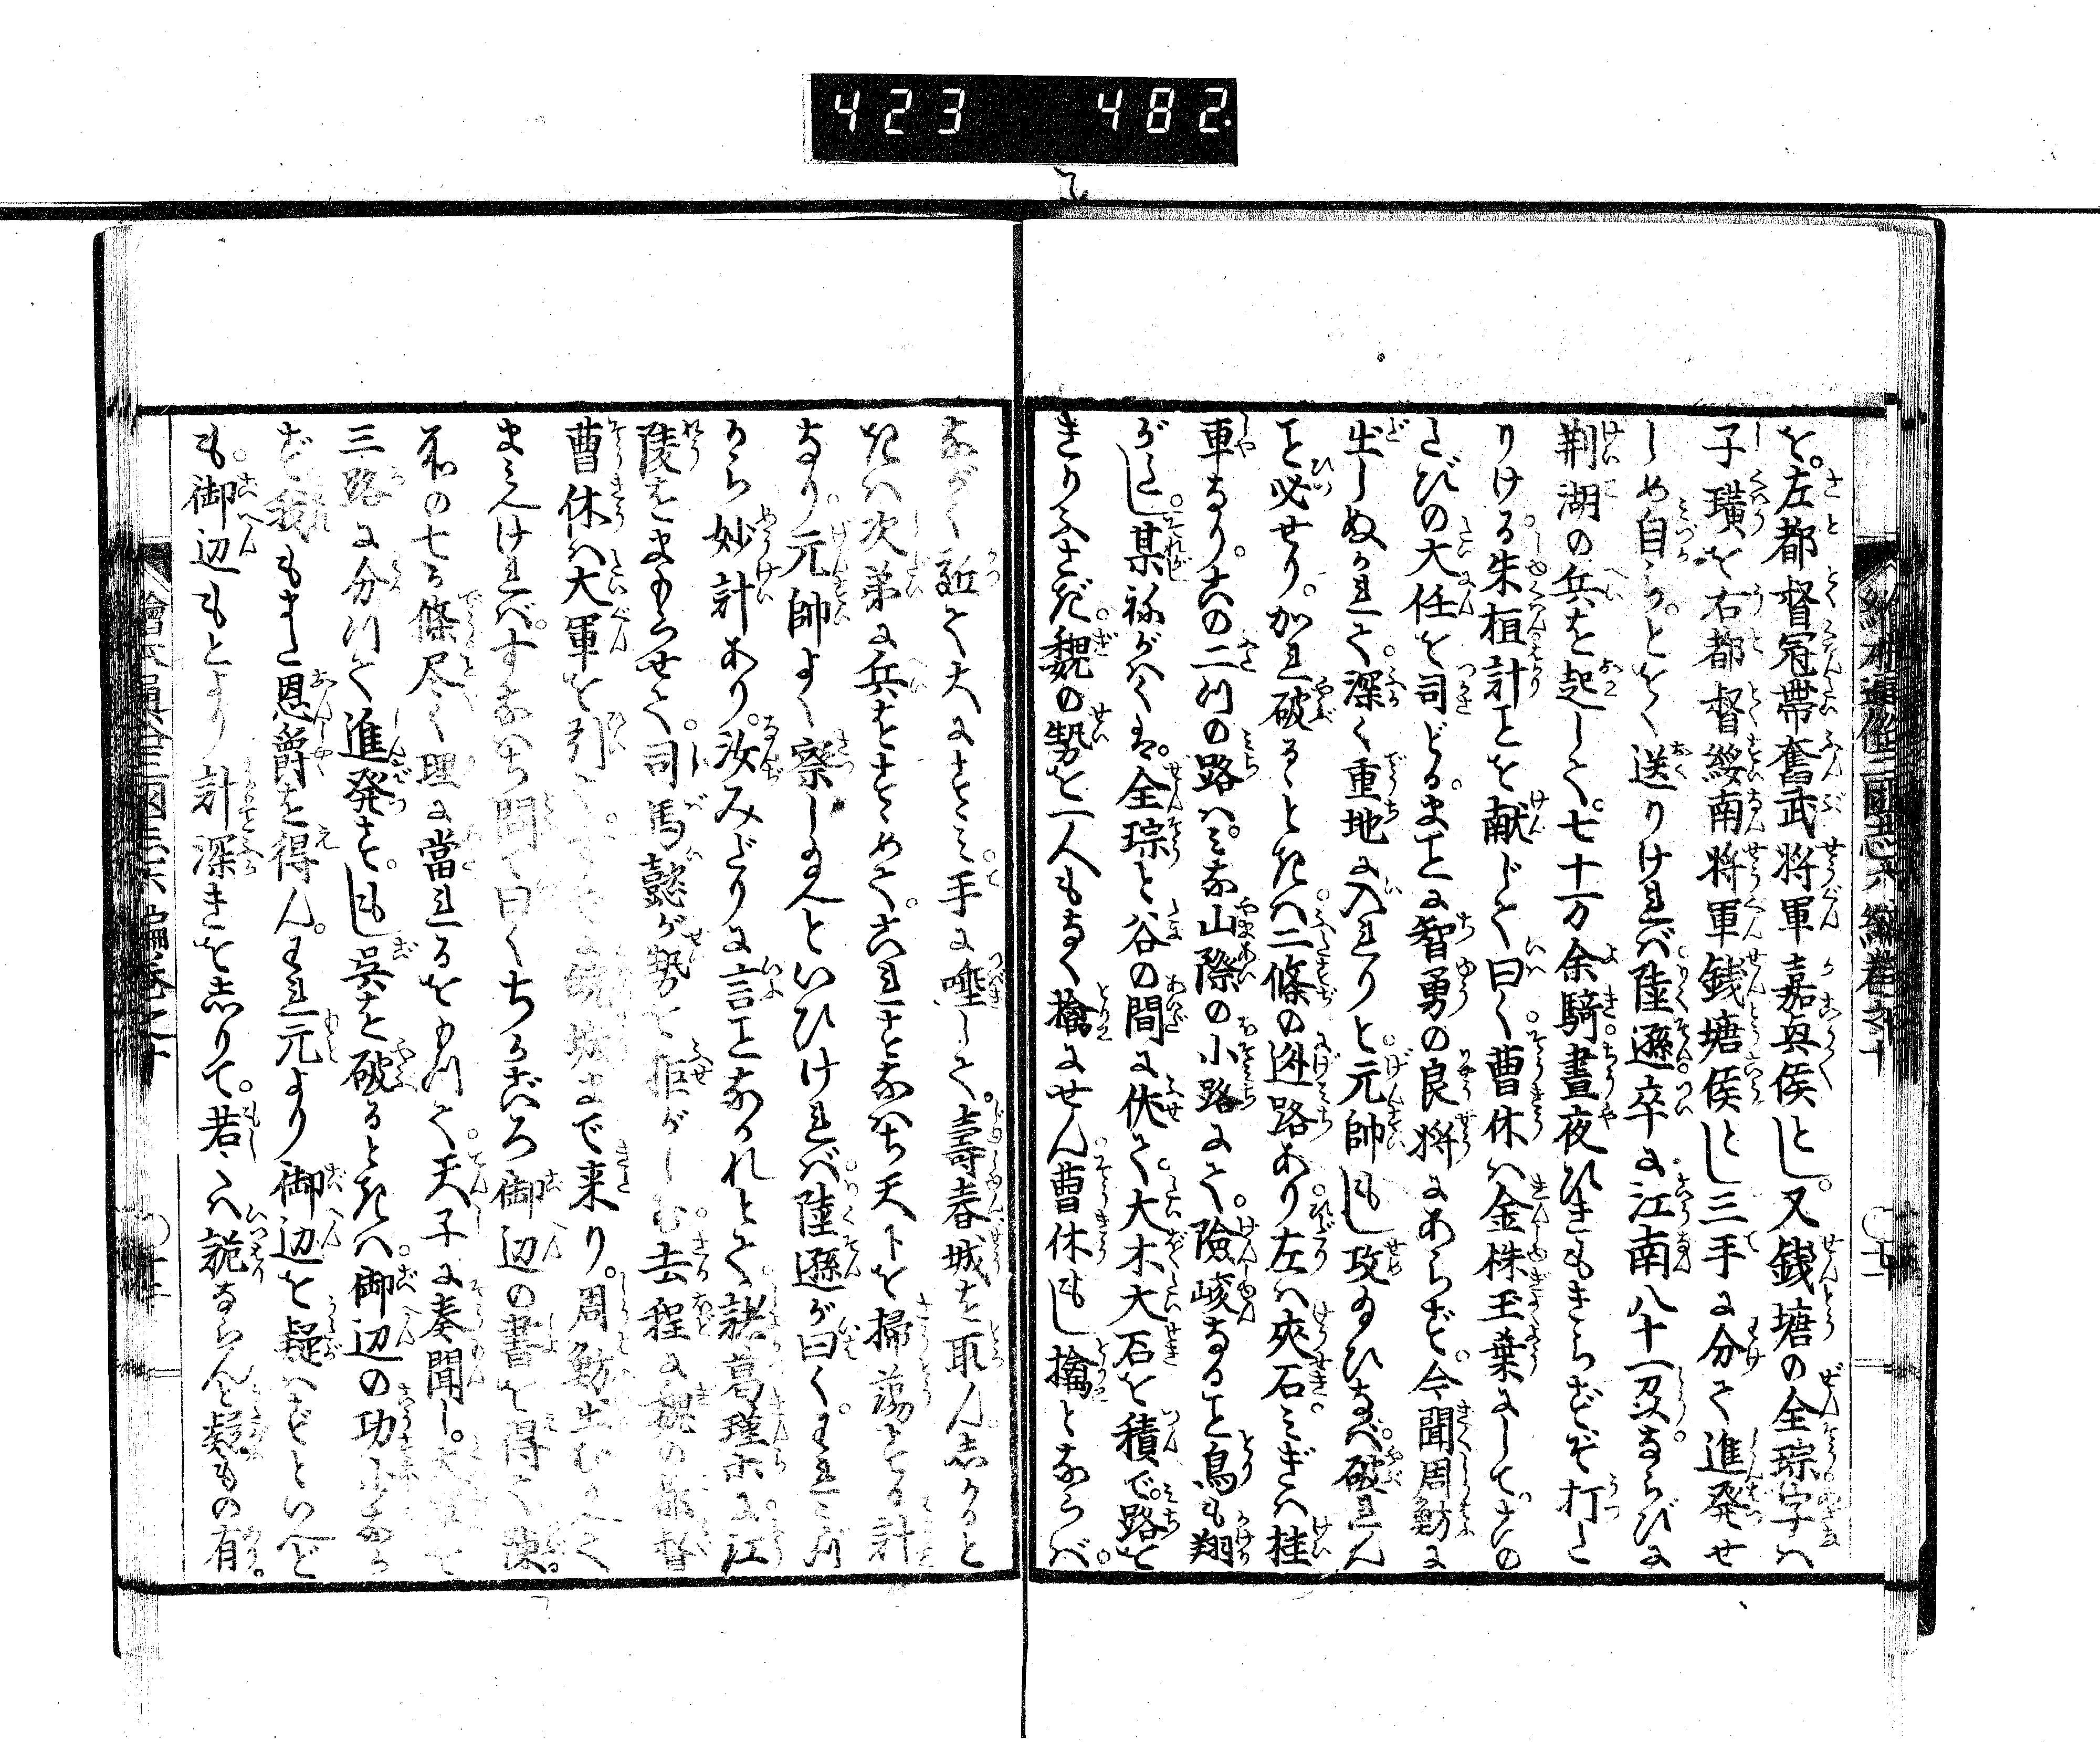 423 482
を。左都督冠帯奮武将軍嘉興侯とし。又銭塘の全琮字ハ
子璜を右都督綏南将軍銭塘侯とし三手に分て進発せ
しめ自らとをく送りけれバ陸遜卒に江南八十一及ならびに
荆湖の兵を起して。七十万余騎昼夜ひきもきらずぞ打た
りける。朱桓計ことを献じて曰く。曹休ハ金株玉葉にして。この
たびの大任を司どる。まことに智勇の良将にあらず。今聞周魴に
出しぬかれて。深く重地に入れりと。元帥もし攻給ひなバ。破れん
こと必せり。加れ破るゝときハ。二條の迯路あり。左ハ夾石。みぎハ桂
車なり。この二川の路ハ。みな山際の小路にて。険峻なること鳥も翔
がたし。某祢がハくハ。全琮と谷の間に伏て。大木大石を積で。路を
きりふさぎ。魏の勢を一人もなく擒にせん。曹休もし擒とならバ。
ながく近て大にすゝみ。手に唾して。寿春城を取ん。志かると
きハ次第に兵をすゝめて。これすなハち天下を掃蕩する計
なり。元帥よく察し給へといひけれバ。陸遜が曰く。われミづ
から妙計あり。汝みだりに言ことなかれとて。諸葛瑾に江
陵をまもらせて。司馬懿が勢を拒がしむ。去程に魏の都督
曹休ハ大軍を引て。すでに皖城まで来り。周魴出むかへて
まミえけれバ。すなハち問て曰く。ちかごろ御辺の書を得て。陳
ぶるの七ヶ條尽く理に當れるをもつて。天子に奏聞し。大軍を
三路に分つて進発す。もし呉を破るときハ。御辺の功少なから
ず。我もまた恩爵を得ん。われ元より御辺を疑ハずといへど
も。御辺もとより計深きを志りて。若ハ詭ならんと疑もの有。